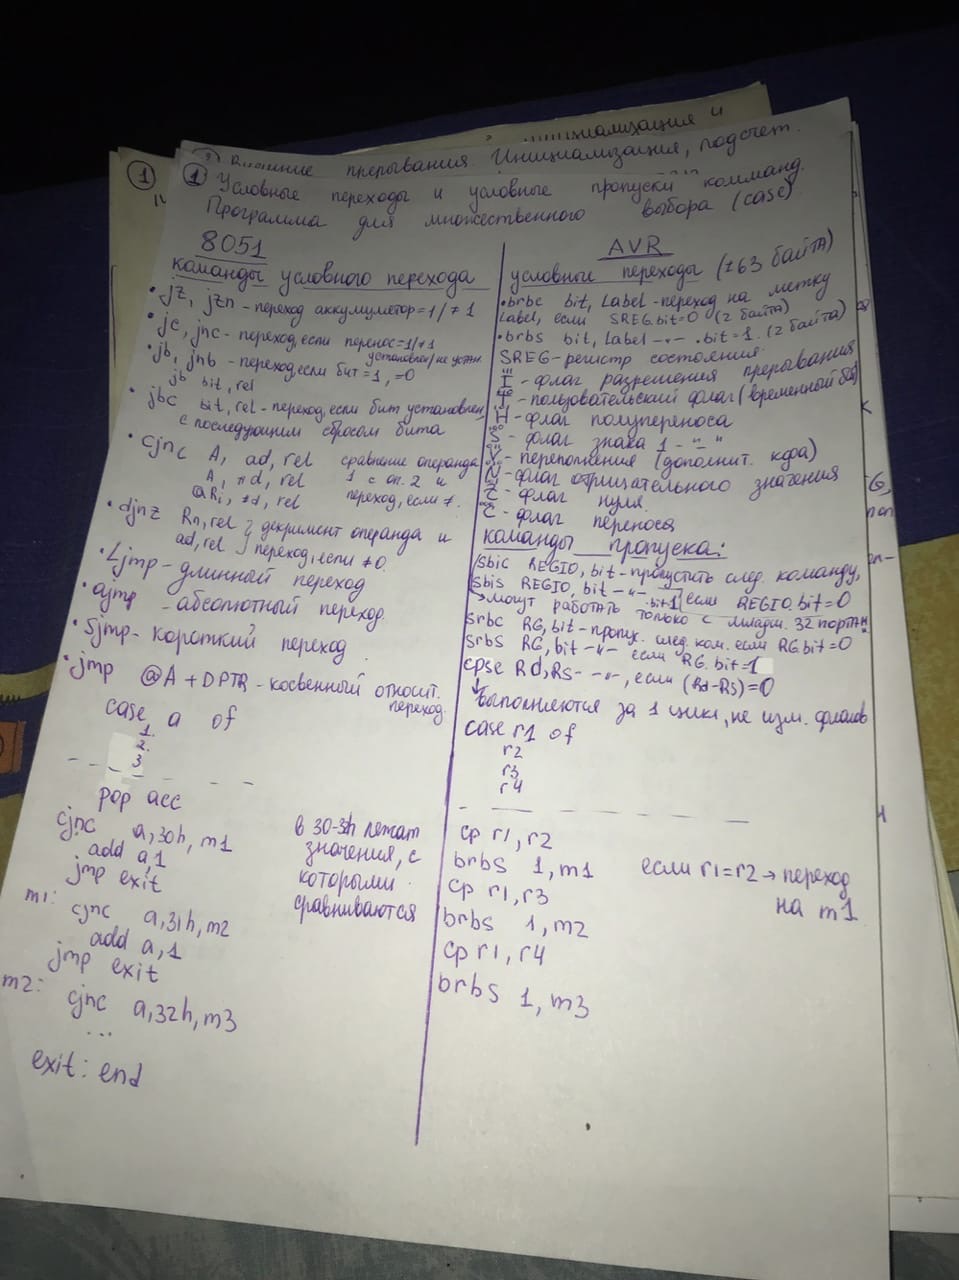 внешние прерывания Инициализация, подсчет.
1
1 Условные переходы и условные пропуски комманд.
Программа для множественного выбора (case)
8051
команды условного перехода
• jz, jzn - переход аккумулятор=1/≠1
• jc, jnc - переход, если перенос=1/≠1
установлен/не устан.
• jb, jnb - переход если бит =1, =0
jb bit, rel
• jbc bit, rel - переход, если бит установлен,
с последующим сбросом бита
• cjnc A, ad, rel сравнение операнда
A, #d, rel 1 с оп. 2 и
@Ri, #d, rel переход, если ≠.
• djnz Rn, rel } декримент операнда и
ad, rel } переход, если ≠0.
• Ljmp - длинный переход
• ajmp - абсолютный переход.
• Sjmp - короткий переход
• jmp @A + DPTR - косвенный относит.
переход.
case a of
1.
2.
3
pop acc
cjnc a, 30h, m1
add a, 1
jmp exit
m1: cjnc a, 31h, m2
add a, 1
jmp exit
m2: cjnc a, 32h, m3
...
exit: end
в 30-32h лежат
значения, с
которыми
сравниваются
AVR
условные переходы (±63 байта)
• brbc bit, Label - переход на метку
Label, если SREG.bit=0 (2 байта)
• brbs bit, Label -"- .bit=1. (2 байта)
SREG - регистр состояния
"I" - флаг разрешения прерывания
"T" - пользовательский флаг (временный
"H" - флаг полупереноса
"S" - флаг знака 1 - "-"
"V" - переполнения (дополнит. кода)
"N" - флаг отрицательного значения
"Z" - флаг нуля
"C" - флаг переноса
команды пропуска:
sbic REGIO, bit - пропустить след. команду,
если REGIO.bit=0
sbis REGIO, bit -"- .bit=1
могут работать только с младш. 32 портами
srbc RG, bit - пропуск. след. ком. если RG.bit=0
srbs RG, bit -"- если RG.bit=1
cpse Rd, Rs -"-, если (Rd-Rs)=0
выполняются за 1 цикл, не изм. флагов
case r1 of
r2
r3
r4
cp r1, r2
brbs 1, m1 если r1=r2 → переход
на m1
cp r1, r3
brbs 1, m2
cp r1, r4
brbs 1, m3